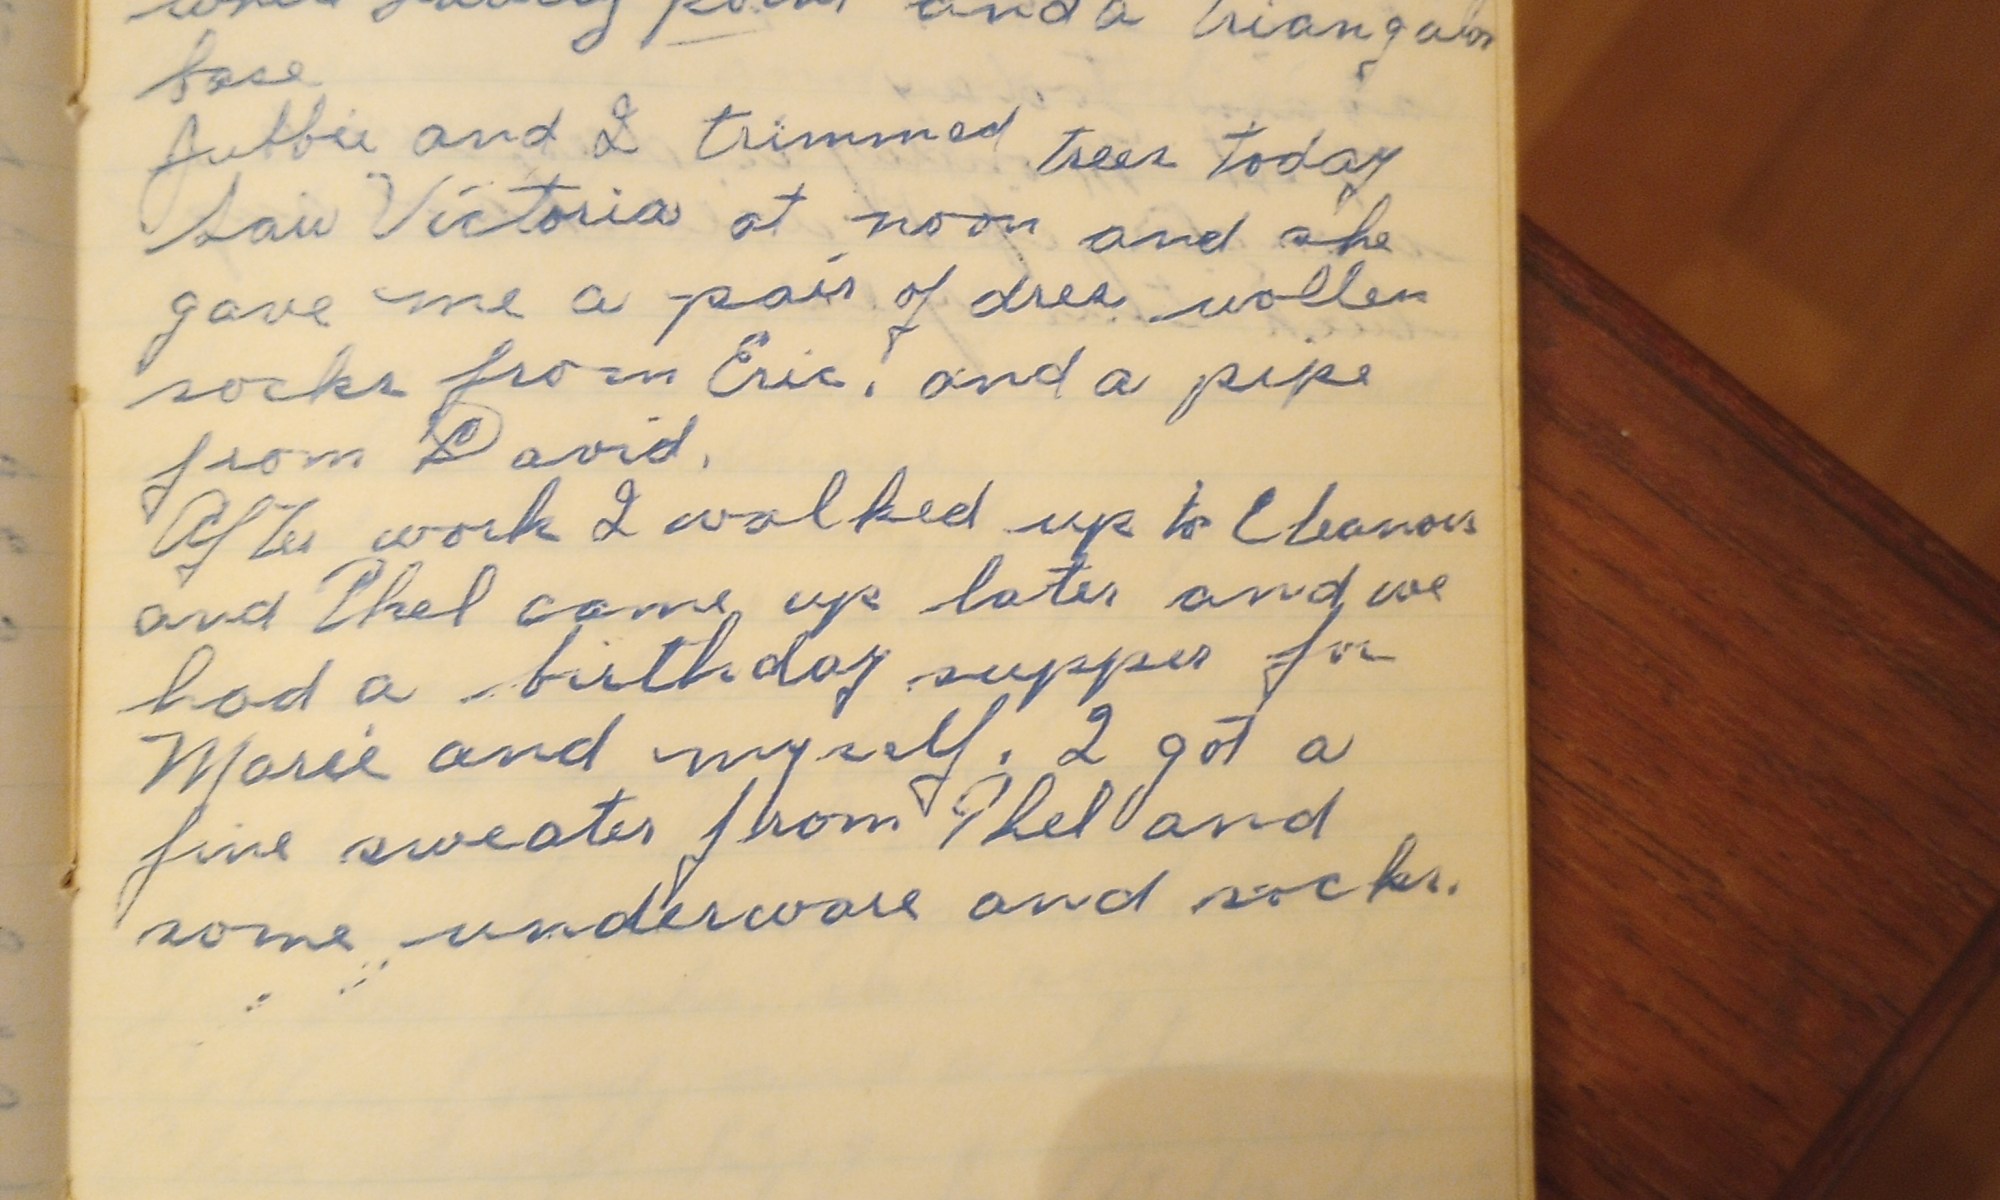 and a triangular
base
Jubbie and I trimmed trees today
Saw Victoria at noon and she
gave me a pair of dres wollen
socks from Eric, and a pipe
from David.
After work I walked up to Eleanors
and Thel came up later and we
had a birthday supper for
Marie and myself. I got a
fine sweater from Thel and
some underware and socks.